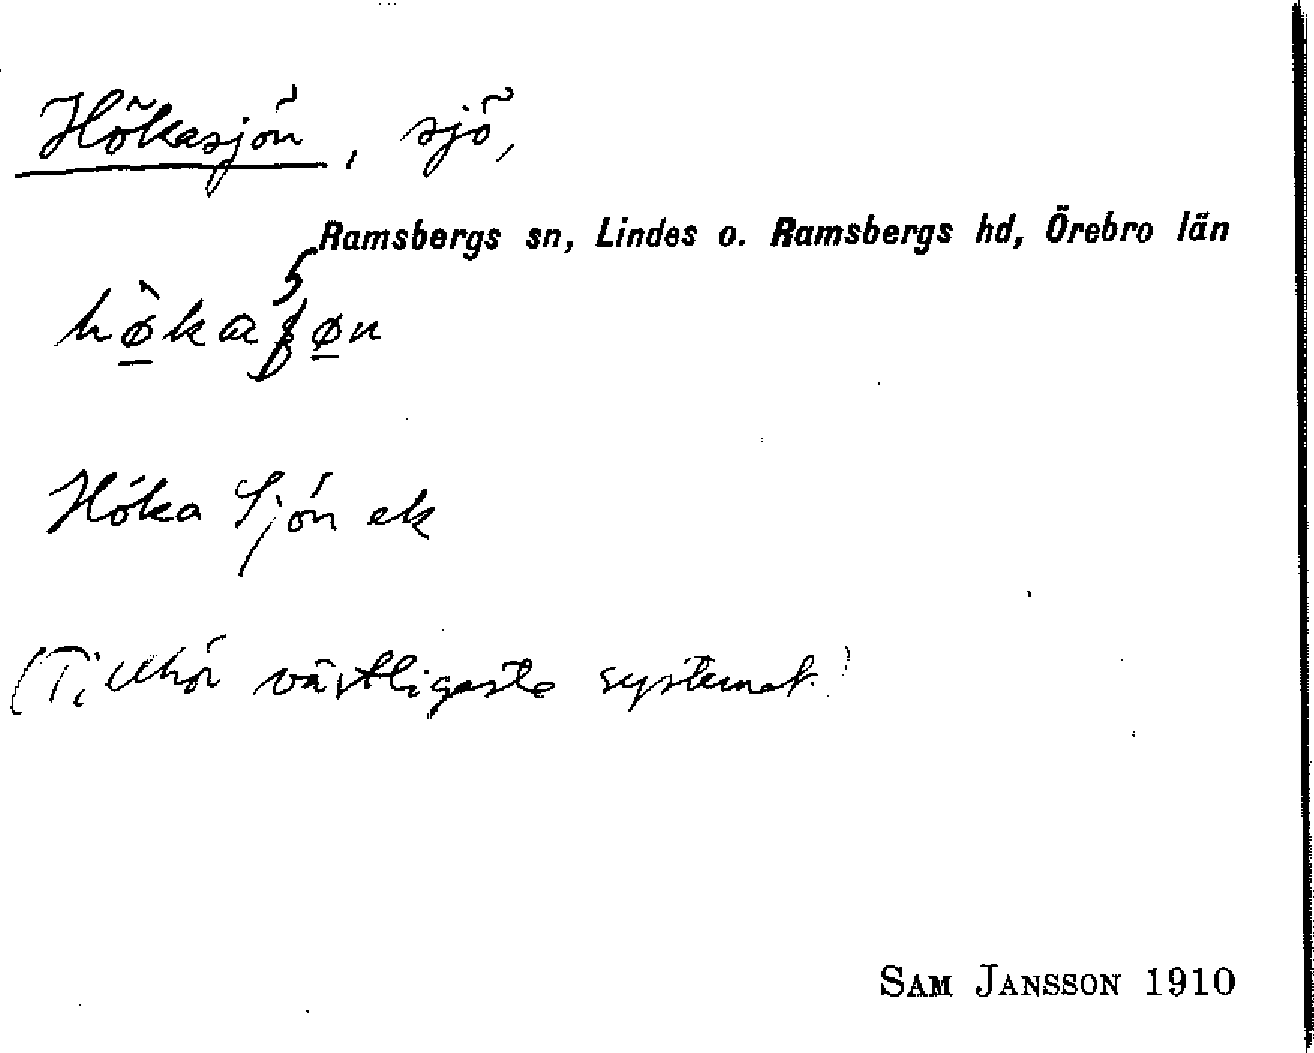 Hökasjön, sjö,
Ramsbergs sn, Lindes o. Ramsbergs hd, Örebro län
hø̲̀kaʃø̲n
Höka Sjön ek
(Tillhör västligaste systemet)
SAM JANSSON 1910